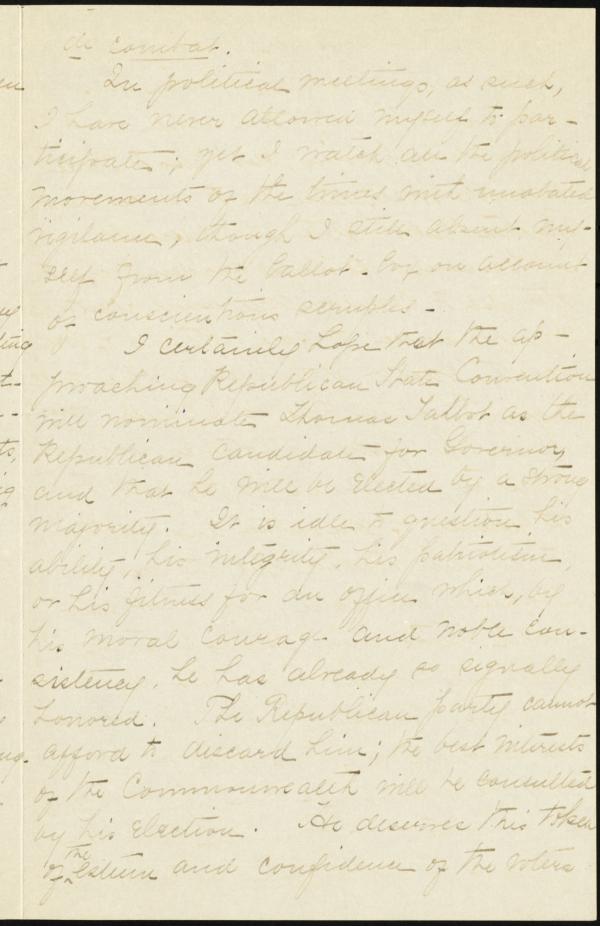 de combat.
In political meetings, as such,
I have never allowed myself to par-
ticipate; yet I watch all the political
movements of the times with unabated
vigilance, though I still absent my-
self from the ballot-box on account
of conscientious scruples.
I certainly hope that the ap-
proaching Republican State Convention
will nominate Thomas Talbot as the
Republican candidate for Governor,
and that he will be elected by a strong
majority. It is idle to question his
ability, his integrity, his patriotism,
or his fitness for an office which, by
his moral courage and noble con-
sistency, he has already so signally
honored. The Republican party cannot
afford to discard him; the best interests
of the Commonwealth will be consulted
by his election. He deserves this token
of the esteem and confidence of the voters